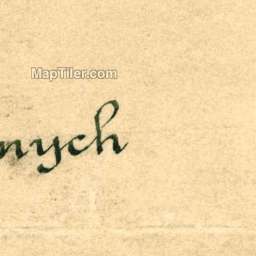 MapTiler.com
nych